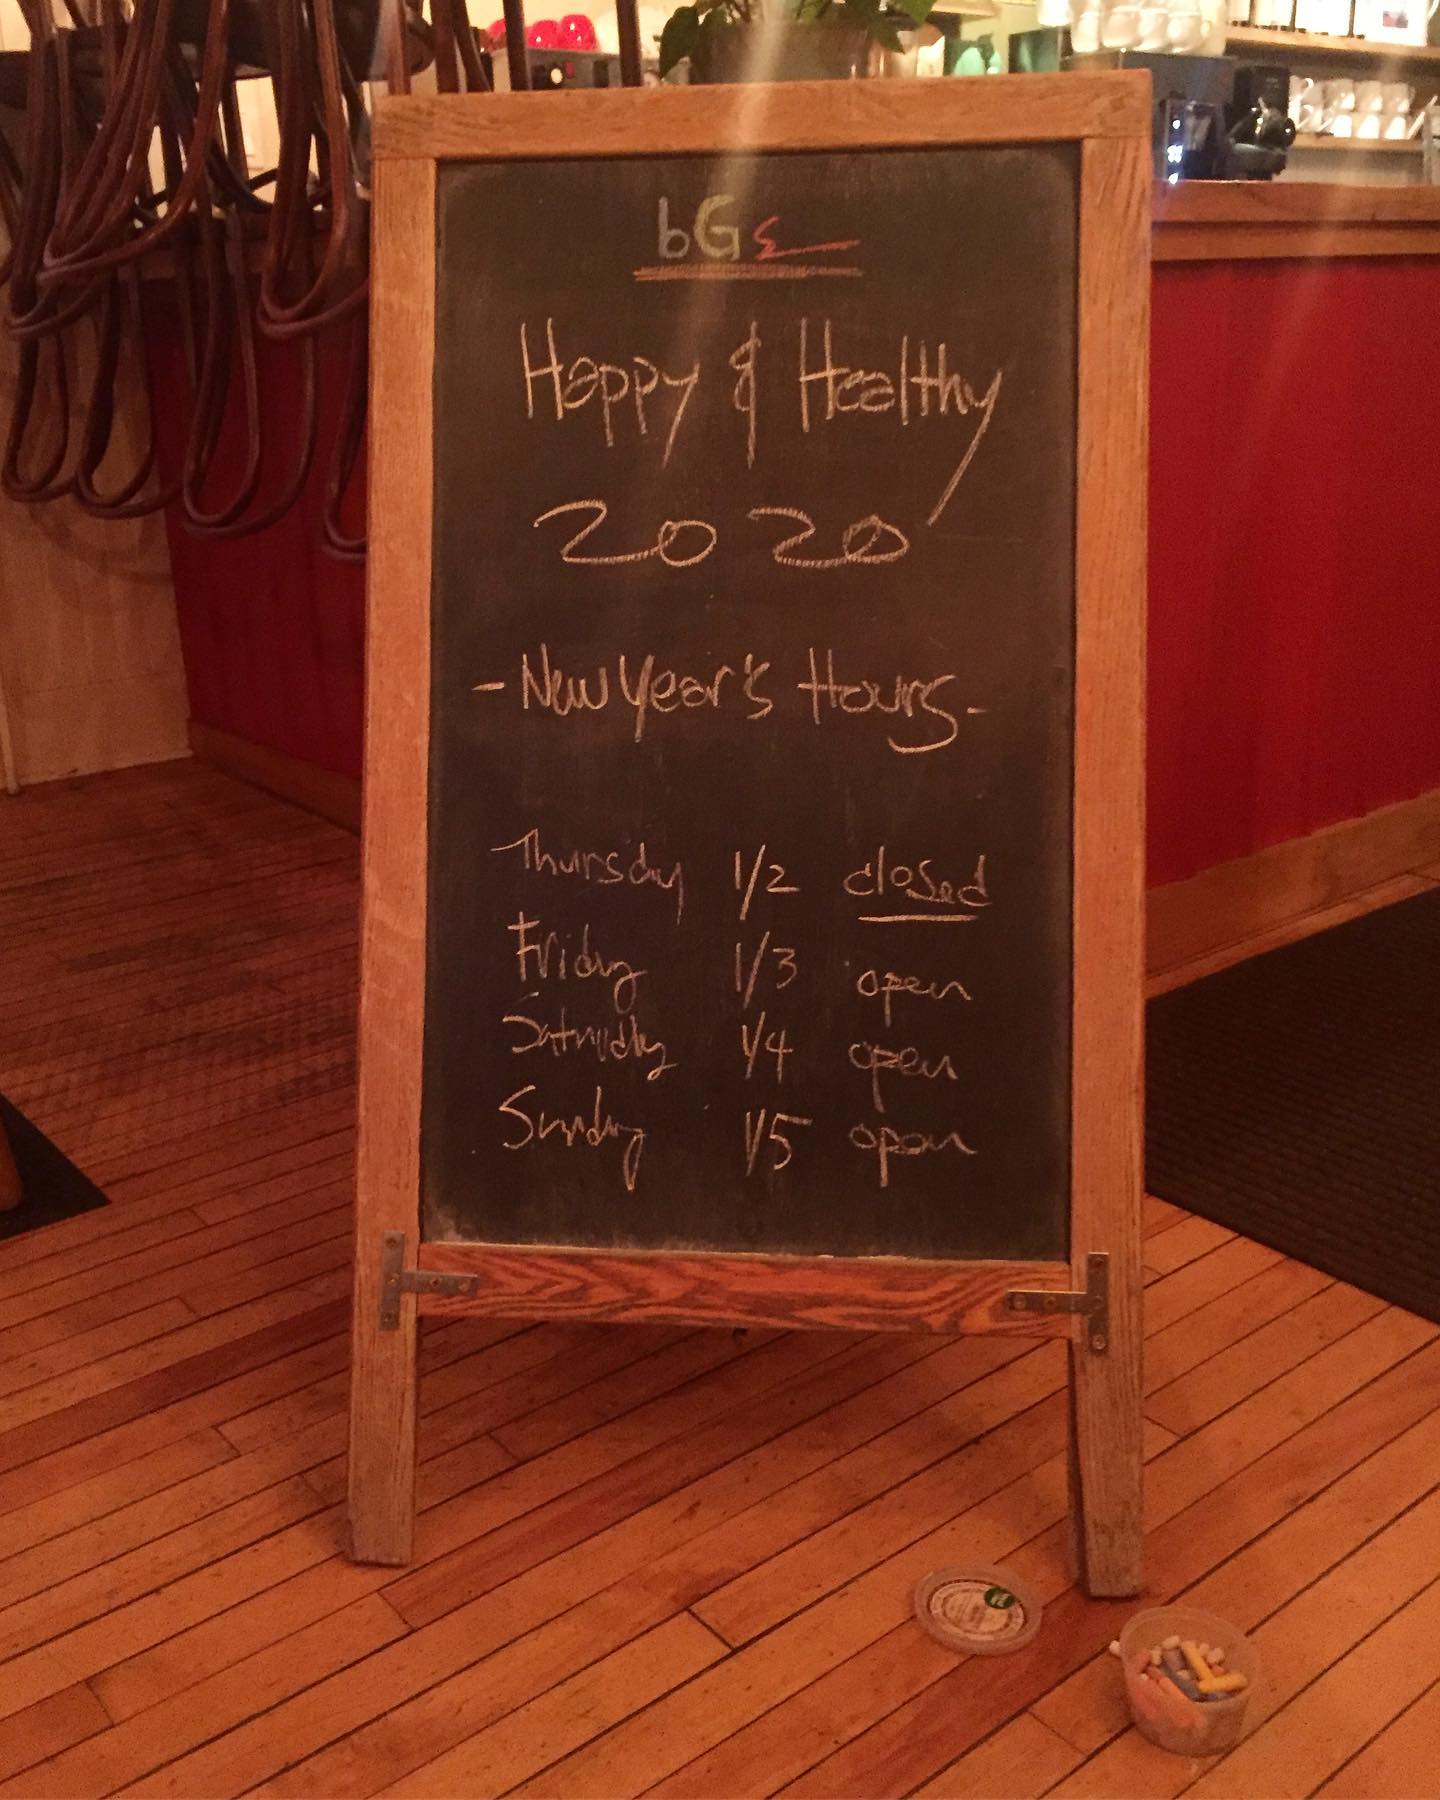 bGs
Happy & Healthy
2020
- New Year's Hours -
Thursday 1/2 closed
Friday 1/3 open
Saturday 1/4 open
Sunday 1/5 open